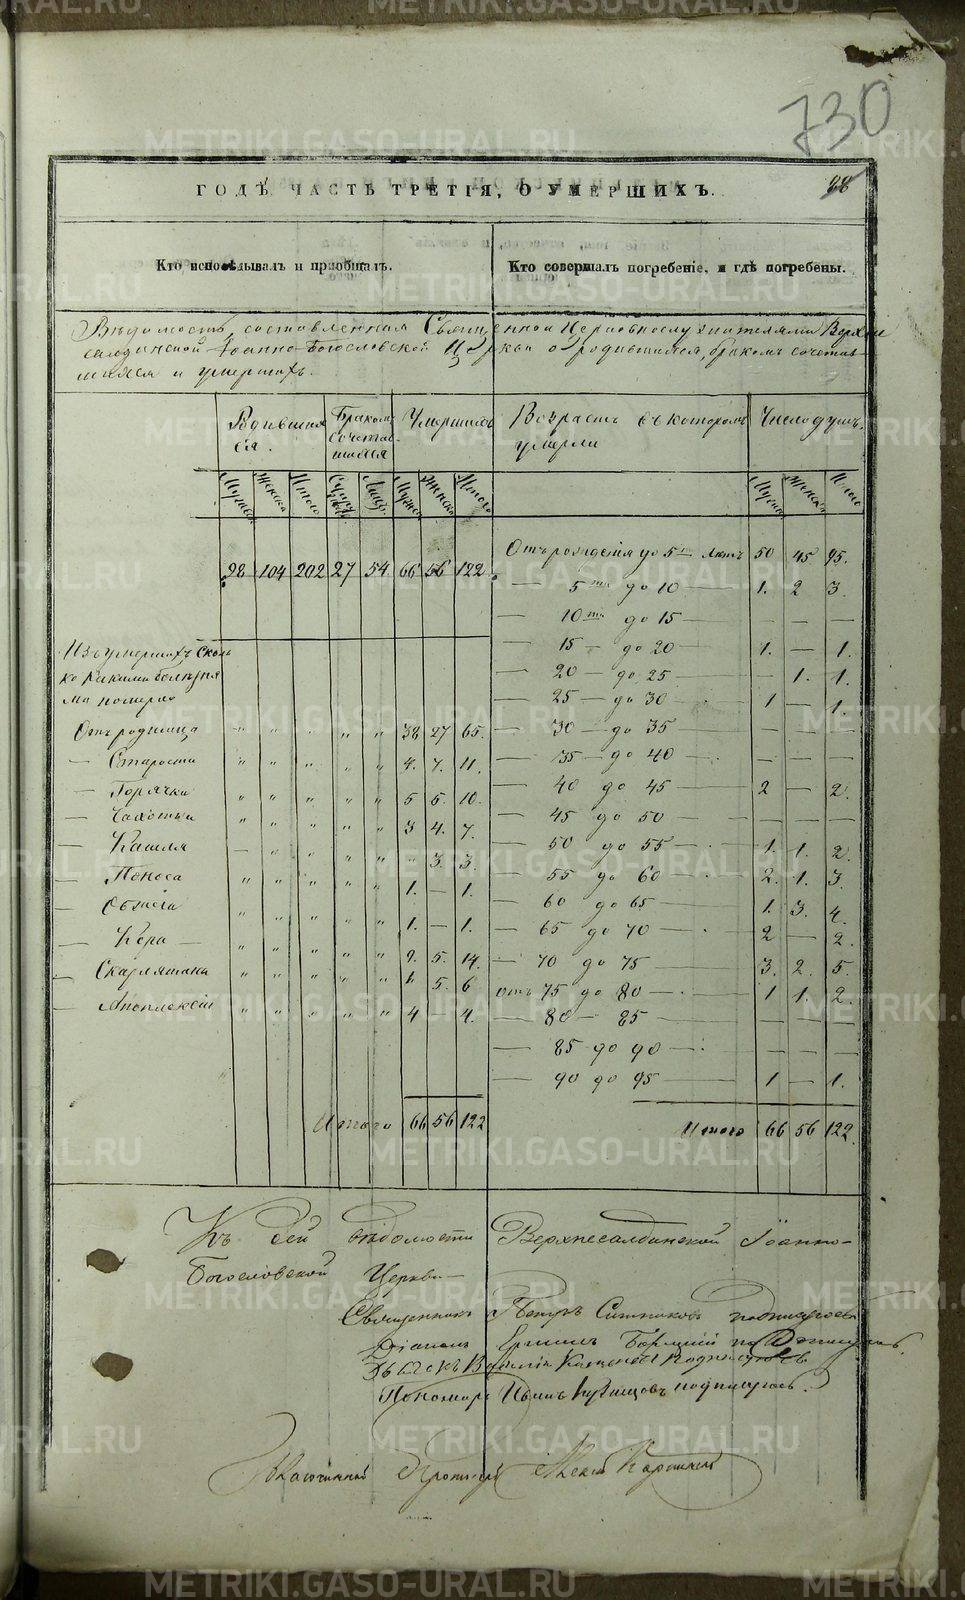 730
ГОДѢ, ЧАСТЬ ТРЕТІЯ, О УМЕРШИХЪ.
28
Кто исповѣдывалъ и пріобщалъ.
Кто совершалъ погребеніе, и гдѣ погребены.
Вѣдомость, составленная Священно и Церковнослужителями Верхне
салдинской Іоанно-Богословской Церкви о родившихся, бракомъ сочетав-
шихся и умершихъ.
Родивших
ся.
Бракомъ
сочетав-
шихся
Умерших
Возрастъ въ которомъ
умерли
Число душъ.
Мужеск Женска Итого Супру Лицъ Мужеск Женска Итого
Мужеск Женска Итого
98 104 202 27 54 66 56 122
Отъ рожденія до 5 Лѣтъ 50 45 95.
— 5 ти до 10 — 1. 2 3.
— 10 ти до 15 — — — —
— 15 — до 20 — 1. — 1.
— 20 — до 25 — — 1. 1.
— 25 — до 30 — 1 — 1.
— 30 — до 35 — — —
— 35 — до 40 — — — —
— 40 до 45 — 2 — 2.
— 45 до 50 — — — —
— 50 до 55 — 1. 1. 2.
— 55 до 60 — 2. 1. 3.
— 60 до 65 — 1. 3. 4.
— 65 до 70 — 2 — 2.
— 70 до 75 — 3. 2. 5.
отъ 75 до 80 — 1 1. 2.
— 80 — 85 — — — —
— 85 до 90 — — — —
— 90 до 95 — 1 — 1.
Итого 66 56 122.
Изъ умершихъ сколь
ко какими болѣзня
ми померло
Отъ родимца " " " " " 38 27 65.
— Старости " " " " " 4. 7. 11.
— Горячки " " " " " 5 5. 10.
— Чахотки " " " " " 3 4. 7.
— Кашля — " " " " " 3. 3.
— Поноса " " " " " 1. — 1.
— " " " " " 1. — 1.
— Кори — " " " " " 9. 5. 14.
— Скарлятины " " " " " 1. 5. 6
— Апоплексіи " " " " " 4 4.
Итого 66 56 122
Къ сей вѣдомости Верхнесалдинской Іоанно-
Богословской Церкви
Священникъ Петръ Ситниковъ подписуюсь
Діаконъ подписуюсь.
Дьячекъ Василій подписуюсь
Пономарь Иванъ Кузнецовъ подписуюсь.